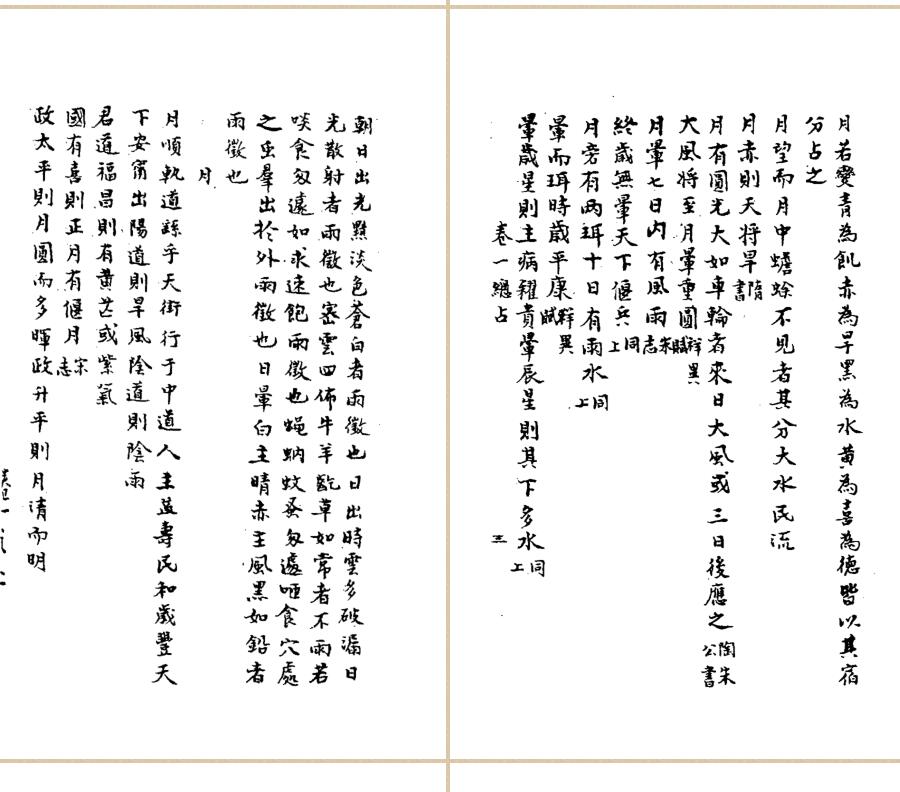 月若變青為飢赤為旱黑為水黃為喜為德皆以其宿
分占之
月望而月中蟾蜍不見者其分大水民流
月赤則天將旱隋書
月有圓光大如車輪者來日大風或三日後應之陶朱公書
大風將至月暈重圓祥異賦
月暈七日內有風雨宋志
終歲無暈天下偃兵同上
月旁有兩珥十日有雨水同上
暈而珥時歲平康祥異賦
暈歲星則主病糴貴暈辰星則其下多水同上
卷一總占 三
朝日出光黯淡色蒼白者雨徵也日出時雲多破漏日
光散射者雨徵也密雲四佈牛羊齕草如常者不雨若
啖食匆遽如求速飽雨徵也蝇蚋蚊蚤匆遽咂食穴處
之虫羣出於外雨徵也日暈白主晴赤主風黑如鉛者
雨徵也
月
月順軌道繇乎天街行于中道人主益壽民和歲豐天
下安甯出陽道則旱風陰道則陰雨
君道福昌則有黃芒或紫氣
國有喜則正月有偃月宋志
政太平則月圓而多暉政升平則月清而明